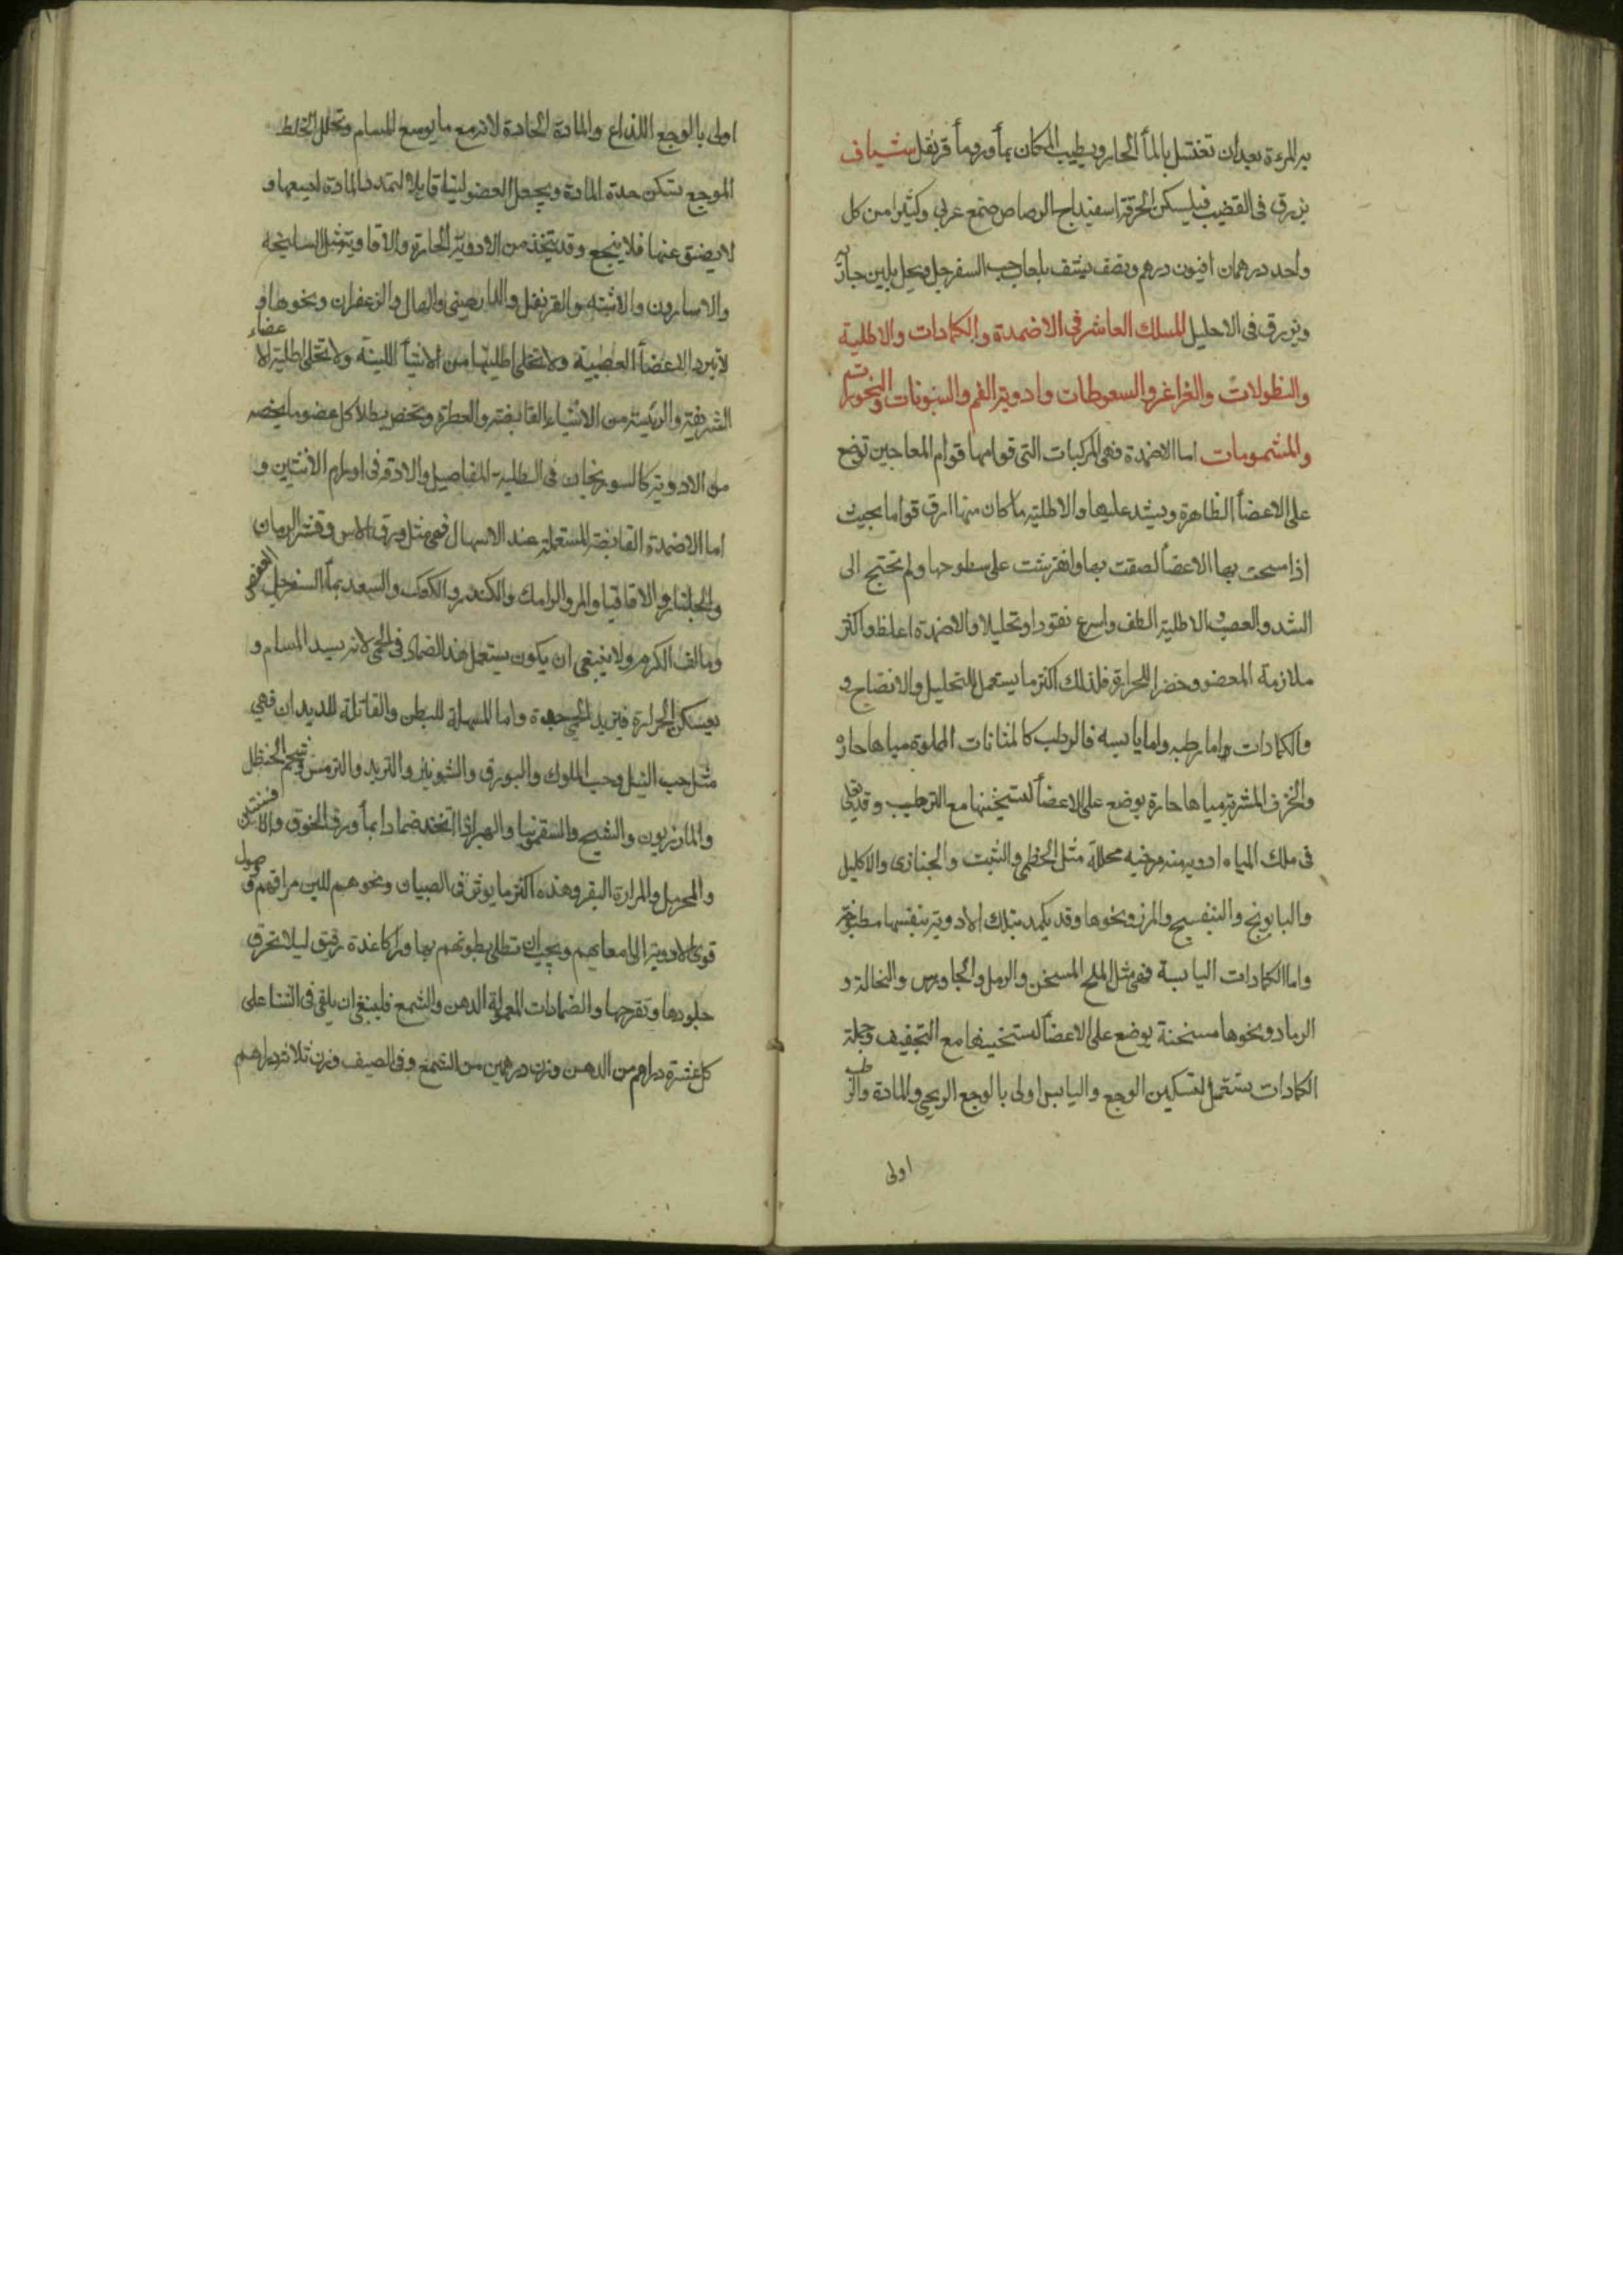 به المرءة بعد ان تغتسل بالمأ الحار ويطيب المكان بمأ ورد ومأ قرنفل شياف
يزرق فى القضيب فيسكن الحرقة اسفيداج الرصاص صمغ عربى وكثيرا من كل
واحد درهمان افيون درهم ونصف يشف بلعاب حب السفرجل ويحل بلبن
ويزرق فى الاحليل المسلك العاشر فى الاضمدة والكمادات والاطلية
والنطولات والغراغر والسعوطات وادوية الفم والسنونات والبخورات
والمشمومات اما الاضمدة فهى المركبات التى قوامها قوام المعاجين توضع
على الاعضأ الظاهرة ويشد عليها والاطلية ما كان منها ارق قواما بحيث
اذا مسحت بها الاعضأ لصقت بها وانفرشت على سطوحها ولم تحتج الى
الشد والعصب والاطلية الطف واسرع نفوذا وتحليلا والاضمدة اغلظ واكثر
ملازمة للعضو وحضرا للحرارة فلذلك اكثر ما يستعمل للتحليل والانضاج و
والكمادات واما رطبه واما يابسه فالرطب كالمثانات المملوة مياها حاره
والخزف المشربة مياها حارة يوضع على الاعضأ لتسخينها مع الترطيب وقد يلقى
فى ملك المياه ادويه مرخيه محللة مثل الخطمى والشبت والخبازى والاكليل
والبابونج والبنفسج والمرز ونحوها وقد يكمد بتلك الادوية بنفسها مطبوخة
واما الكمادات اليابسة فهى مثل الملح المسخن والرمل والجاورس والنخالة و
الرماد ونحوها مسخنة يوضع على الاعضأ لتسخينها مع التجفيف وجملة
الكمادات يستعمل لتسكين الوجع واليابس اولى بالوجع الريحى والمادة والرطب
اولى
اولى بالوجع اللذاع والمادة الحادة لانه مع ما يوسع المسام وتحلل الخلط
الموجع يسكن حدة المادة ويجعل العضو لينا قابلا لتمدد بالمادة ليسعها و
لا يضيق عنها فلا ينجع وقد يتخذ من الادوية الحارة والافاوية مثل السليخه
والاسارون والاشنه والقرنفل والدارصينى والهال والزعفران ونحوها و
لا تبرد الاعضأ العصبية ولا تخلى اطليتها من الاشيأ اللينة ولا تخلى اطلية الاعضاء
الشريفة والرئيسة من الاشياء القابضة والعطرة وتخص بطلا كل عضو ما يخصه
من الادوية كالسورنجان فى اطلية المفاصيل والادقه فى اورام الانثيين و
اما الاضمدة القابضة المستعملة عند الاسهال فهى مثل ورق الاس وقشر الرمان
والجلنار والاقاقيا والمر والرامك والكندر والكعك والسعد بمأ السفرجل العفص
ومالف الكرم ولا ينبغى ان يكون يستعمل هذا الضماد فى الحمى لانه يسد المسام و
يعسكن الحرارة فتزيد الحمى حدة واما المسهلة للبطن والقاتلة للديدان فهى
مثل حب النيل وحب الملوك والبورق والشونيز والتربد والترمس وشحم الحنظل
والمازريون والشيح والسقمونيا اتخذ ضمادا بمأ ورق الخوخ والافسنتين
والحرمل والمرارة البقر وهذه اكثر ما يوثر فى الصبيان ونحوهم للين مراقهم وصول
قوى الادوية الى امعايهم ويجب ان تطلى بطونهم بها ورا كاغدة رقيق ليلا تحرق
جلودها وتقرحها والضمادات المعمولة الدهن والشمع فلينبغ ان يلقى فى الشتا على
كل عشرة دراهم من الدهن وزن درهمين من الشمع وفى الصيف وزن ثلاثه دراهم